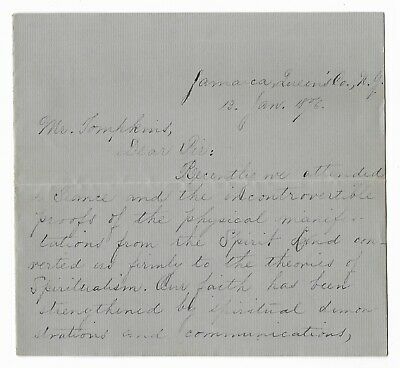 Jamaica, Queen's Co., N.Y.
12. Jan. 1876.
Mr. Tompkins,
Dear Sir:
Recently we attended
a Seance and the incontrovertible
proofs of the physical manifes-
tations from the Spirit Land con-
verted us firmly to the theories of
Spiritualism. Our faith has been
strengthened by spiritual demon
strations and communications,